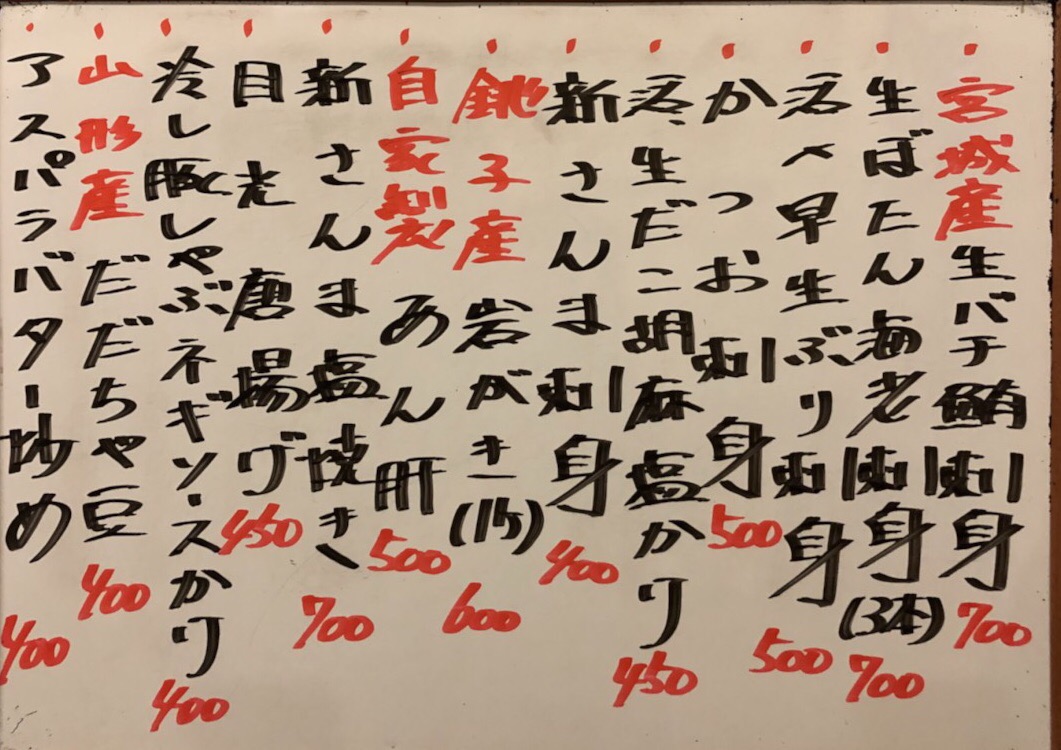 宮城産生バチ鮪刺身 700
生ぼたん海老刺身(3本) 700
活〆早生ぶり刺身 500
かつお刺身 500
活生だこ胡麻塩かり 450
新さんま刺身 400
銚子産 岩がき(1ケ) 600
自家製 あん肝 500
新さんま塩焼き 700
目光唐揚げ 450
冷し豚しゃぶネギソースかり 400
山形産 だだちゃ豆 400
アスパラバター炒め 400